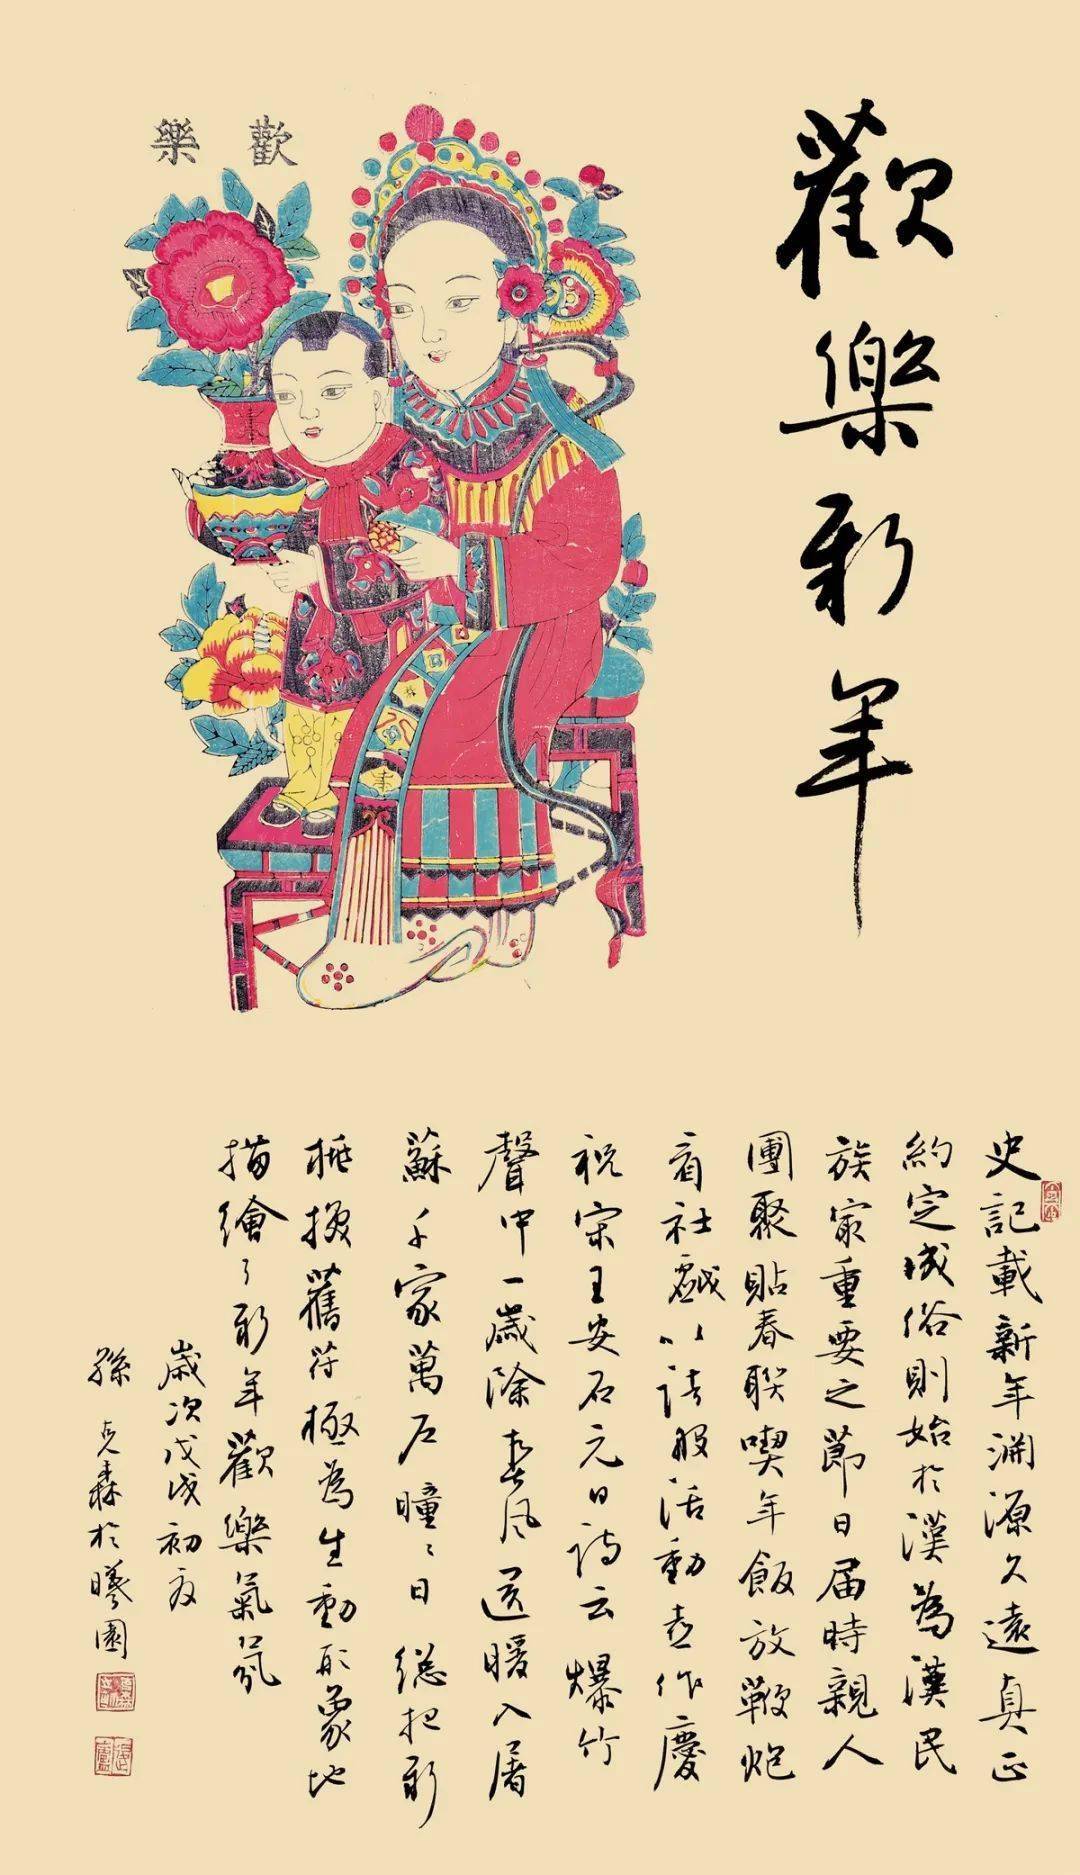 歡樂新年
歡樂
史記載新年淵源久遠真正
約定成俗則始於漢為漢民
族最重要之節日屆時親人
團聚貼春聯喫年飯放鞭炮
看社戲以諸般活動作慶
祝宋王安石元日詩云爆竹
聲中一歲除春風送暖入屠
蘇千家萬戶曈曈日總把新
桃換舊符極為生動形象地
描繪了新年歡樂氣氛
歲次戊戌初夏
孫克森於曦園